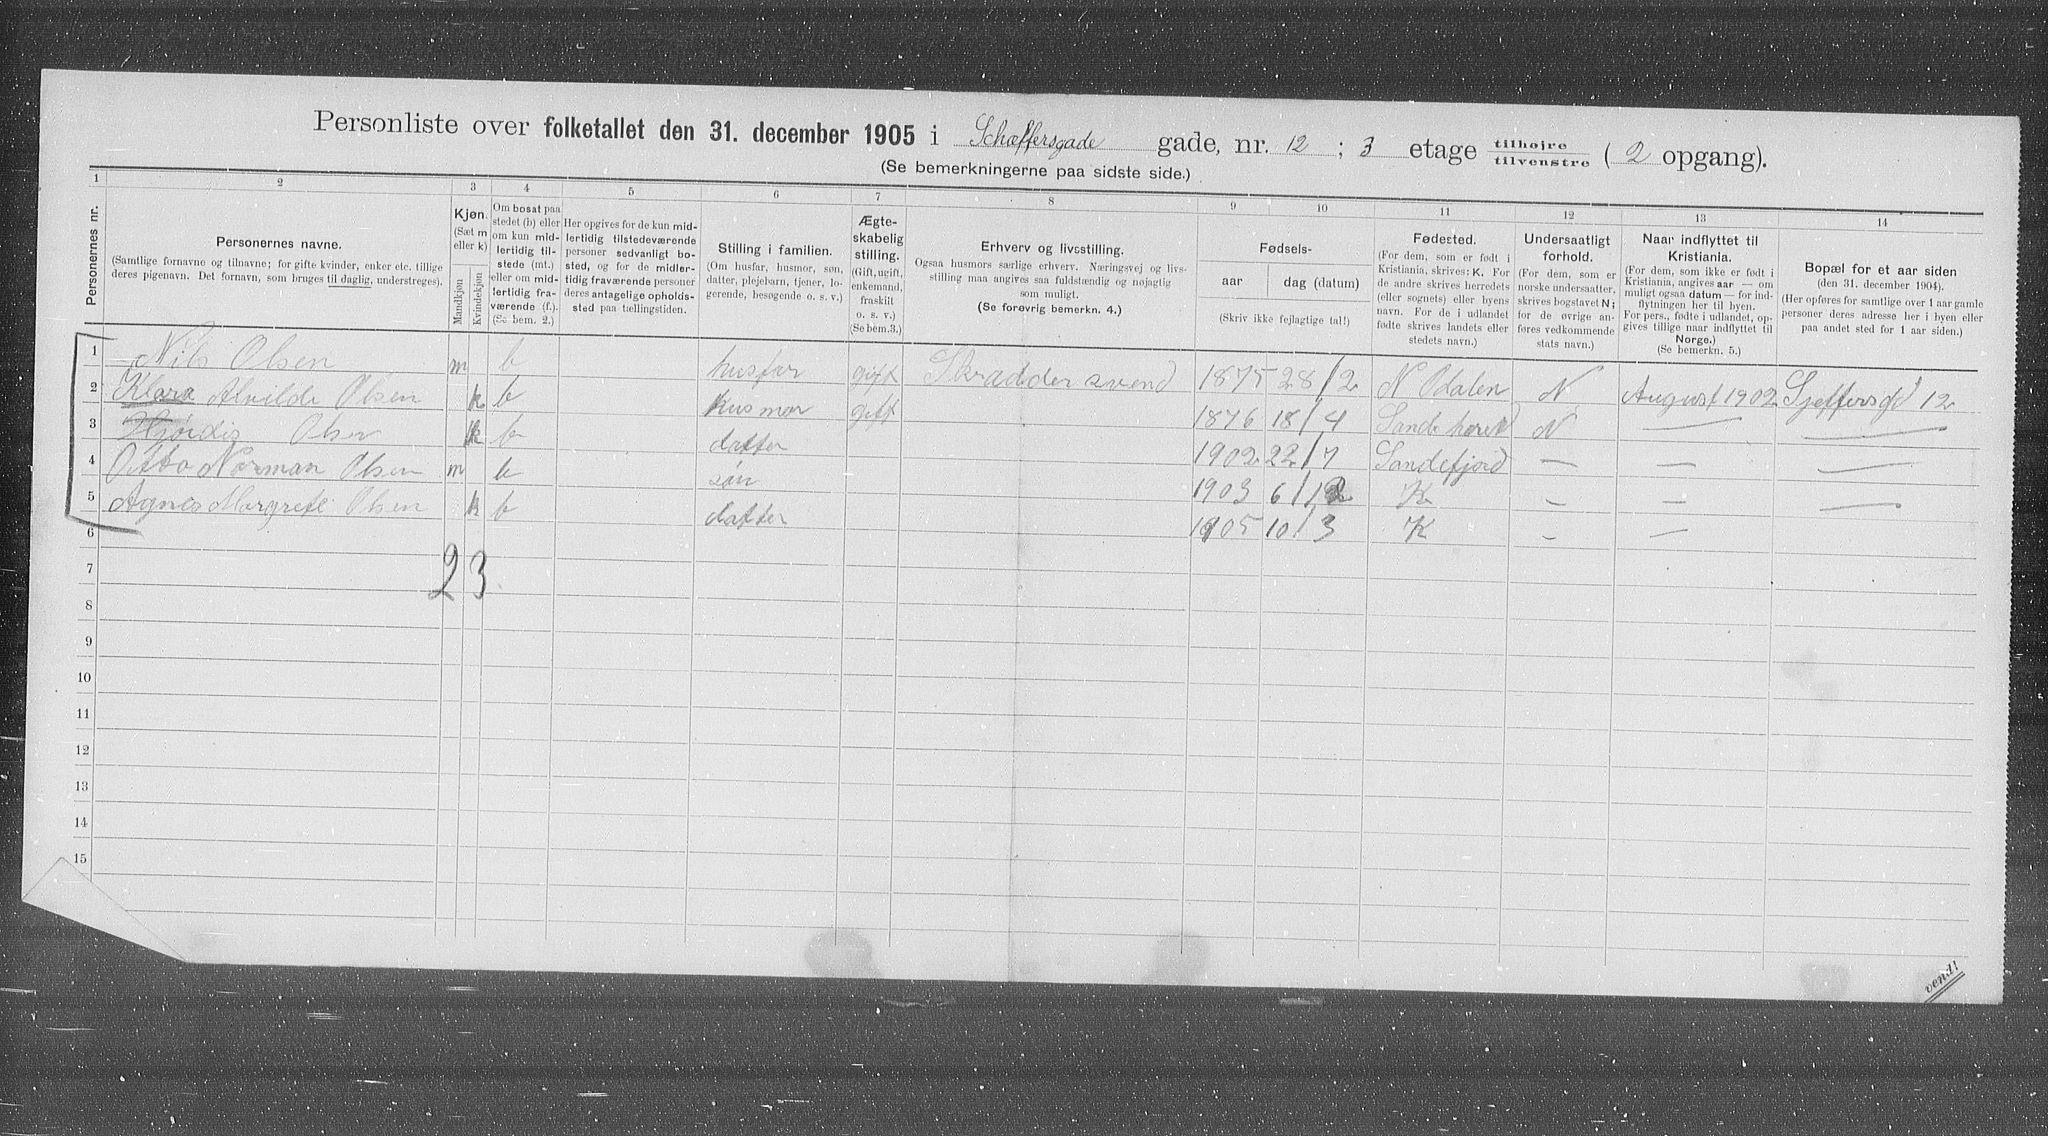 Personliste over folketallet den 31. december 1905 i Schæffersgade gade, nr. 12 ; 3 etage tilhøjre tilvenstre ( 2 opgang).
(Se bemerkningerne paa sidste side.)
1 2 3 4 5 6 7 8 9 10 11 12 13 14
Personernes nr.
Personernes navne.
(Samtlige fornavne og tilnavne; for gifte kvinder, enker etc. tillige
deres pigenavn. Det fornavn, som bruges til daglig, understreges).
Kjøn.
(Sæt m
eller k)
Mandkjøn
Kvindekjøn
Om bosat paa
stedet (b) eller
om kun mid-
lertidig til-
stede (mt.)
eller om mid-
lertidig fra-
værende (f.).
(Se bem. 2.)
Her opgives for de kun mid-
lertidig tilstedeværende
personer sedvanlig bo-
sted, og for de midler-
tidig fraværende personer
deres antagelige opholds-
sted paa tællingstiden.
Stilling i familien.
(Om husfar, husmor, søn,
datter, plejebarn, tjener, lo-
gerende, besøgende o. s. v.)
Ægte-
skabelig
stilling.
(Gift, ugift,
enkemand,
fraskilt
o. s. v.)
(Se bem.3.)
Erhverv og livsstilling.
Ogsaa husmors særlige erhverv. Næringsvej og livs-
stilling maa angives saa fuldstændig og nøjagtig
som muligt.
(Se forøvrig bemerkn. 4.)
Fødsels-
aar
dag (datum)
(Skriv ikke fejlagtige tal!)
Fødested.
(For dem, som er født i
Kristiania, skrives: K. For
de andre skrives herredets
(eller sognets) eller byens
navn. For de i udlandet
fødte skrives landets eller
stedets navn.)
Undersaatligt
forhold.
(For dem, som er
norske undersaatter,
skrives bogstavet N;
for de øvrige an-
føres vedkommende
stats navn.)
Naar indflyttet til
Kristiania.
(For dem, som ikke er født i
Kristiania, angives aar — om
muligt ogsaa datum — for ind-
flytningen her til byen.
For pers., fødte i udlandet, op-
gives tillige naar indflyttet til
Norge.)
(Se bemerkn. 5.)
Bopæl for et aar siden
(den 31. december 1904).
(Her opføres for samtlige over 1 aar gamle
personer deres adresse her i byen eller
paa andet sted for 1 aar siden.)
1 Nils Olsen m b husfar gift Skræddersvend 1875 28/2 N Odalen N August 1902 Sjeffersgd 12
2 Klara Alvilde Olsen k b husmor gift 1876 18/4 Sandeherred N — —
3 Hjørdis Olsen k b datter 1902 22/7 Sandefjord — — —
4 Otto Norman Olsen m b søn 1903 6/12 K — — —
5 Agnes Margrete Olsen k b datter 1905 10/3 K — —
6
2 3
7
8
9
10
11
12
13
14
15
vend!